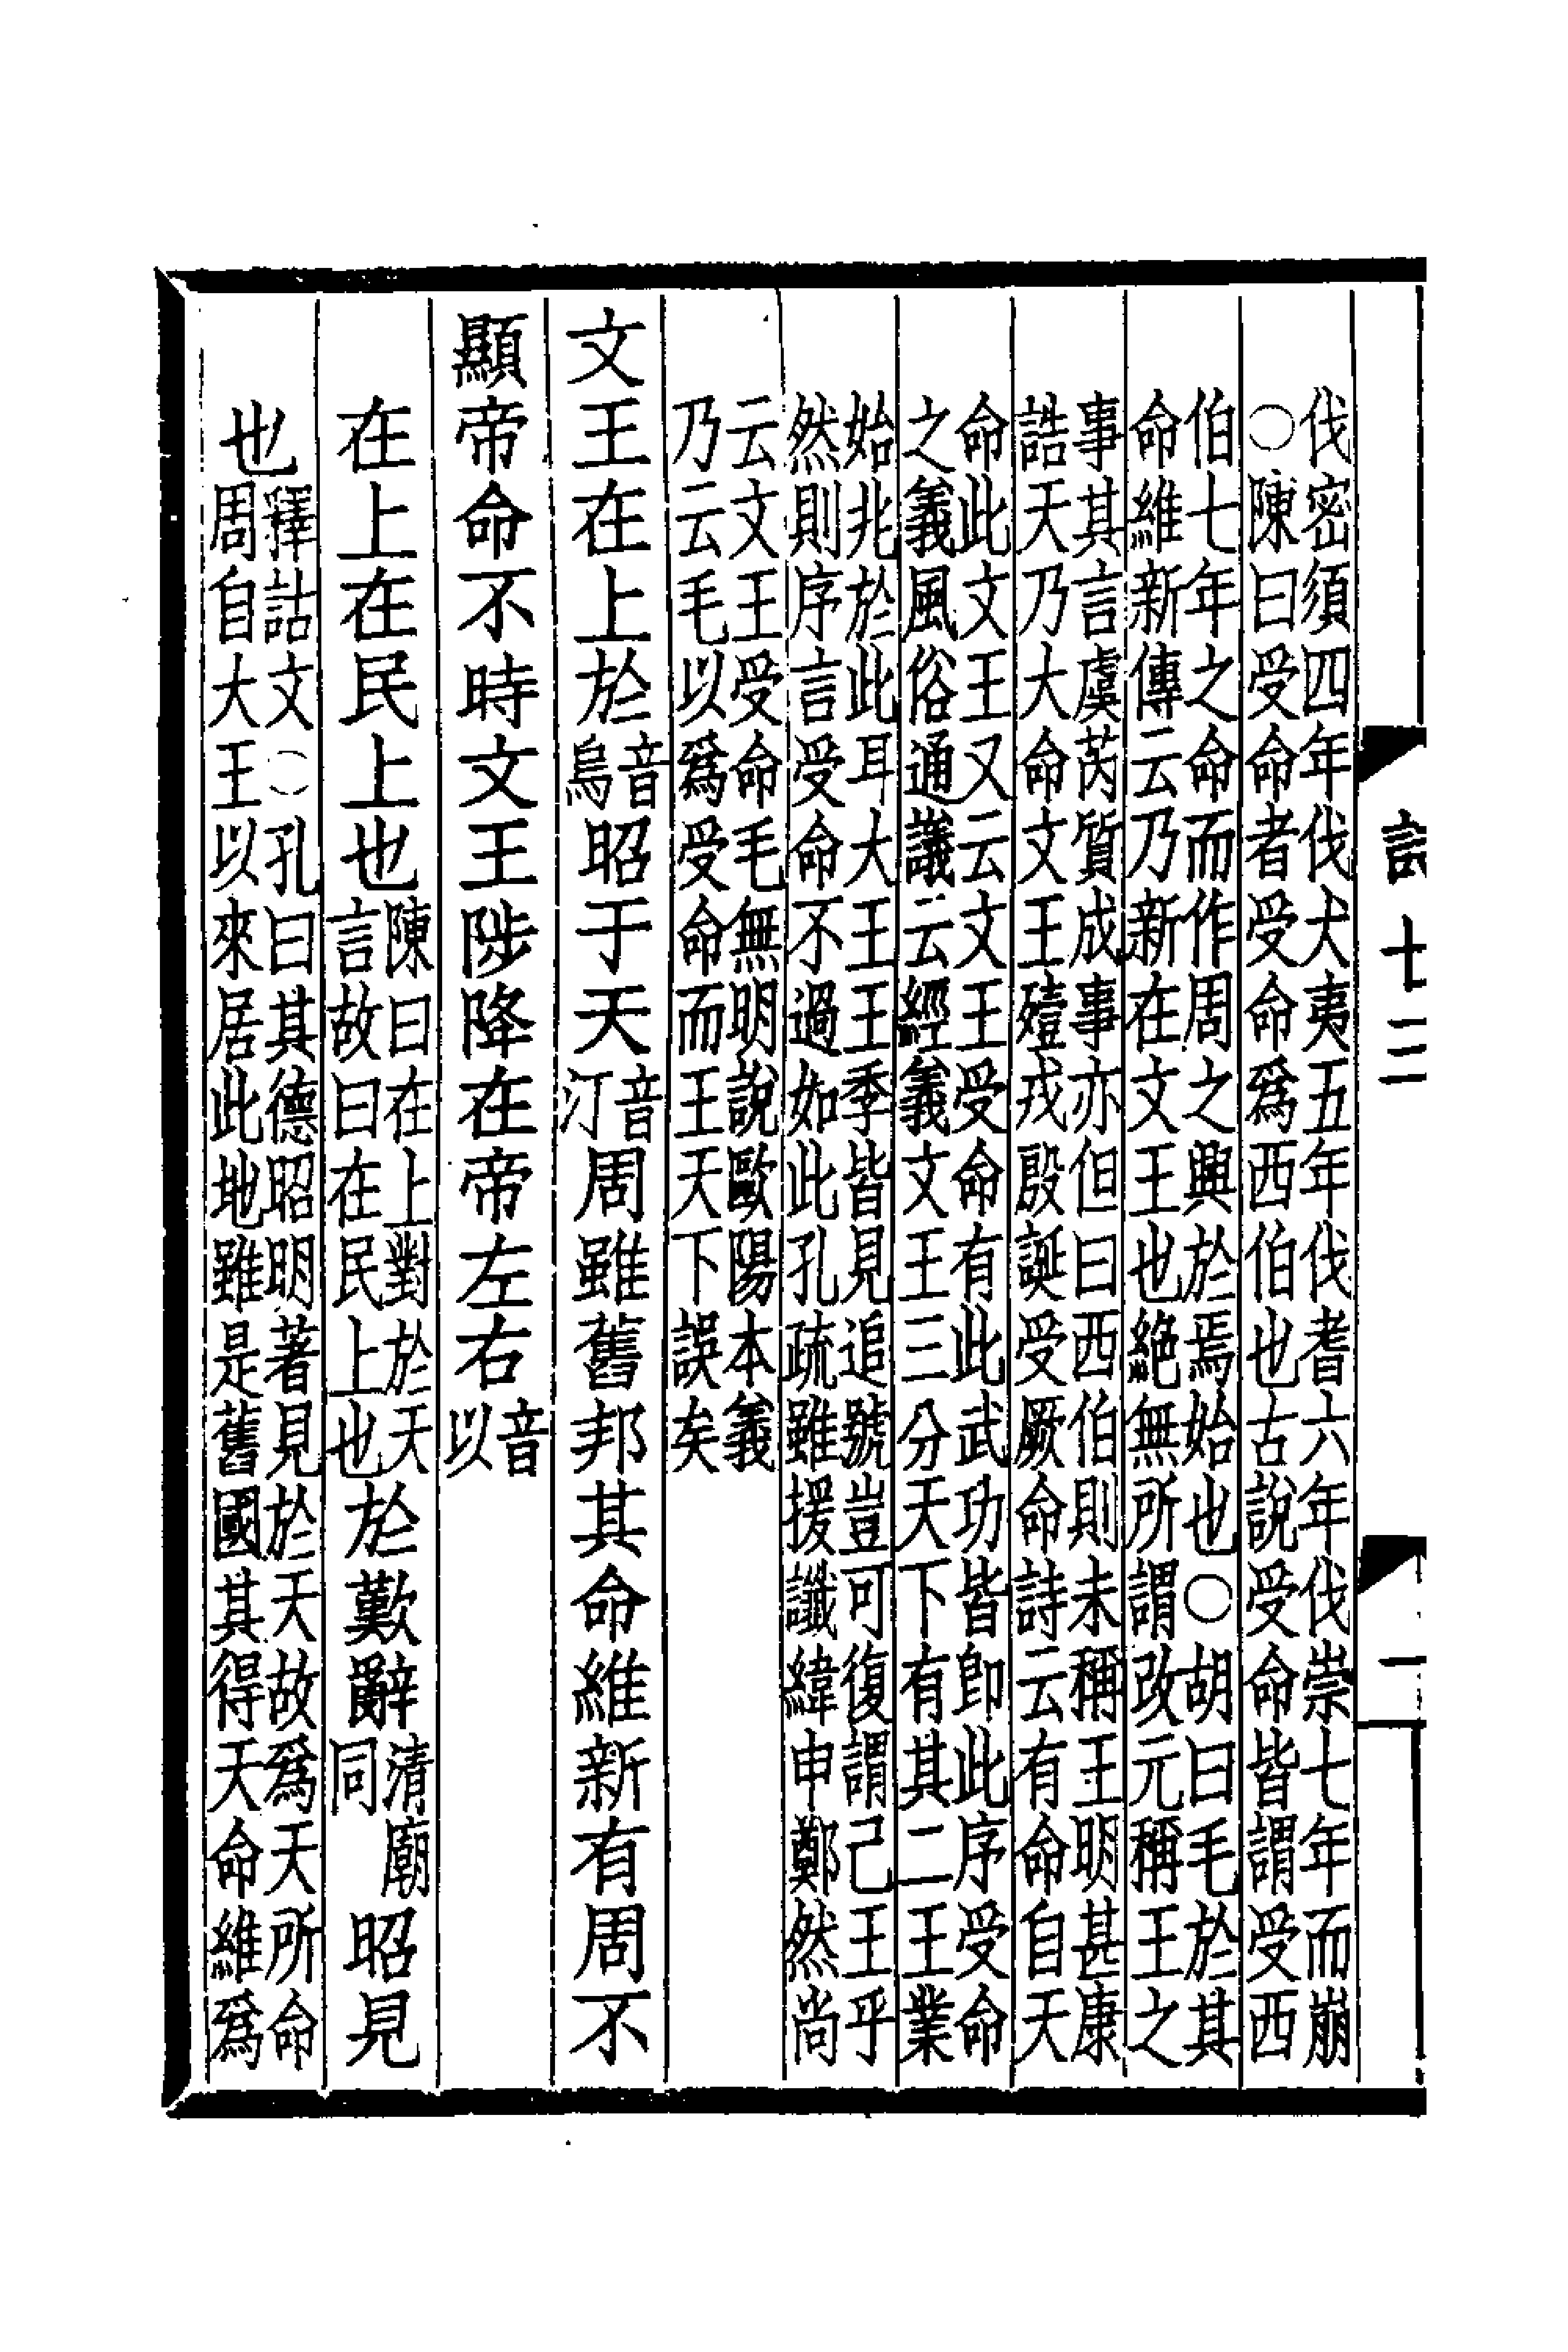 詩十二
一
伐密須四年伐犬夷五年伐耆六年伐崇七年而崩
○陳曰受命者受命爲西伯也古說受命皆謂受西
伯七年之命而作周之興於焉始也○胡曰毛於其
命維新傳云乃新在文王也絶無所謂改元稱王之
事其言虞芮質成事亦但曰西伯則未稱王明甚康
誥天乃大命文王殪戎殷誕受厥命詩云有命自天
命此文王又云文王受命有此武功皆即此序受命
之義風俗通議云經義文王三分天下有其二王業
始兆於此耳大王王季皆見追號豈可復謂己王乎
然則序言受命不過如此孔疏雖援讖緯申鄭然尚
云文王受命毛無明說歐陽本義
乃云毛以爲受命而王天下誤矣
文王在上於音烏昭于天音汀周雖舊邦其命維新有周不
顯帝命不時文王陟降在帝左右音以
在上在民上也陳曰在上對於天言故曰在民上也於歎辭清廟同昭見
也釋詁文○孔曰其德昭明著見於天故爲天所命周自大王以來居此地雖是舊國其得天命維爲